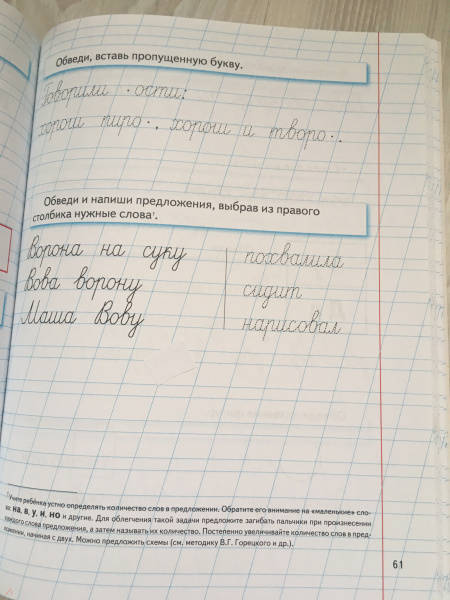 Обведи, вставь пропущенную букву.
Говорили · ости:
хорош пиро · , хорош и творо · .
Обведи и напиши предложения, выбрав из правого
столбика нужные слова¹.
Ворона на суку похвалила
Вова ворону сидит
Маша Вову нарисовал
¹ Учите ребёнка устно определять количество слов в предложении. Обратите его внимание на «маленькие» сло-
ва: на, в, у, и, но и другие. Для облегчения такой задачи предложите загибать пальчики при произнесении
каждого слова предложения, а затем называть их количество. Постепенно увеличивайте количество слов в пред-
ложении, начиная с двух. Можно предложить схемы (см. методику В.Г. Горецкого и др.).
61